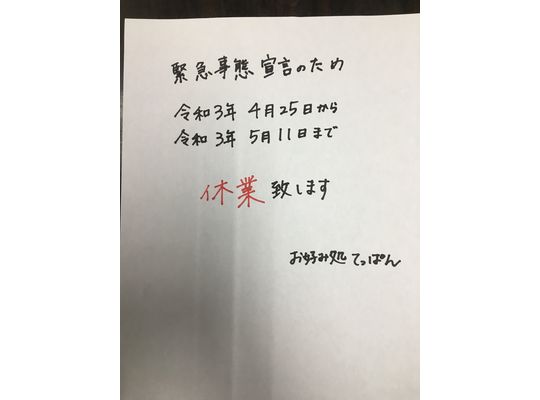 緊急事態宣言のため
令和3年 4月25日から
令和3年 5月11日まで
休業致します
お好み処 てっぱん